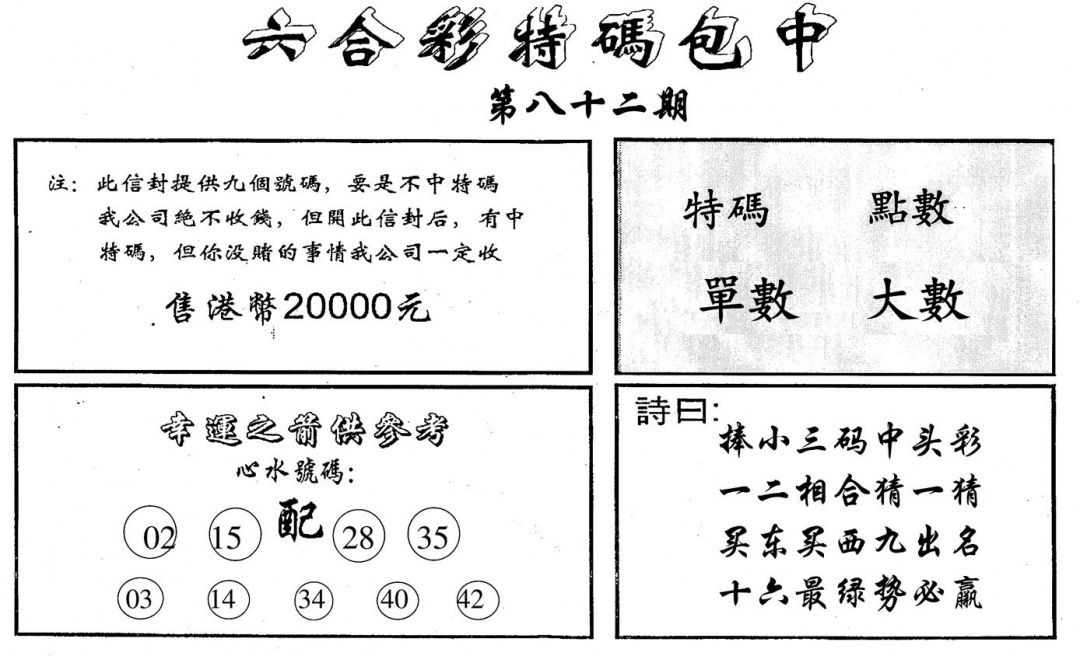 六合彩特碼包中
第八十二期
注：此信封提供九個號碼，要是不中特碼
我公司絕不收錢，但開此信封后，有中
特碼，但你没賭的事情我公司一定收
售港幣20000元
特碼 點數
單數 大數
幸運之箭供參考
心水號碼：
配
02 15 28 35
03 14 34 40 42
詩曰：
捧小三码中头彩
一二相合猜一猜
买东买西九出名
十六最绿势必赢